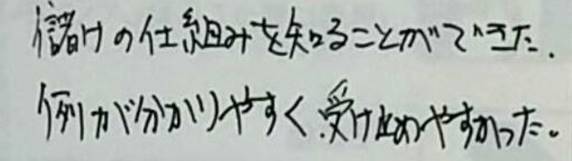 儲けの仕組みを知ることができた.
例が分かりやすく受け止めやすかった。